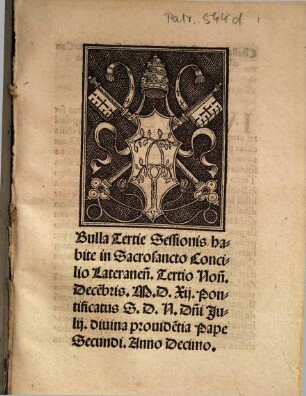 Patr. 544 d
Bulla Tertie Sessionis ha-
bite in Sacrosancto Conci-
lio Lateraneñ. Tertio Noñ.
Decẽbris. M. D. Xij. Pon-
tificatus S. D. N. Dñi Ju-
lij. diuina prouidẽtia Pape
Secundi. Anno Decimo.